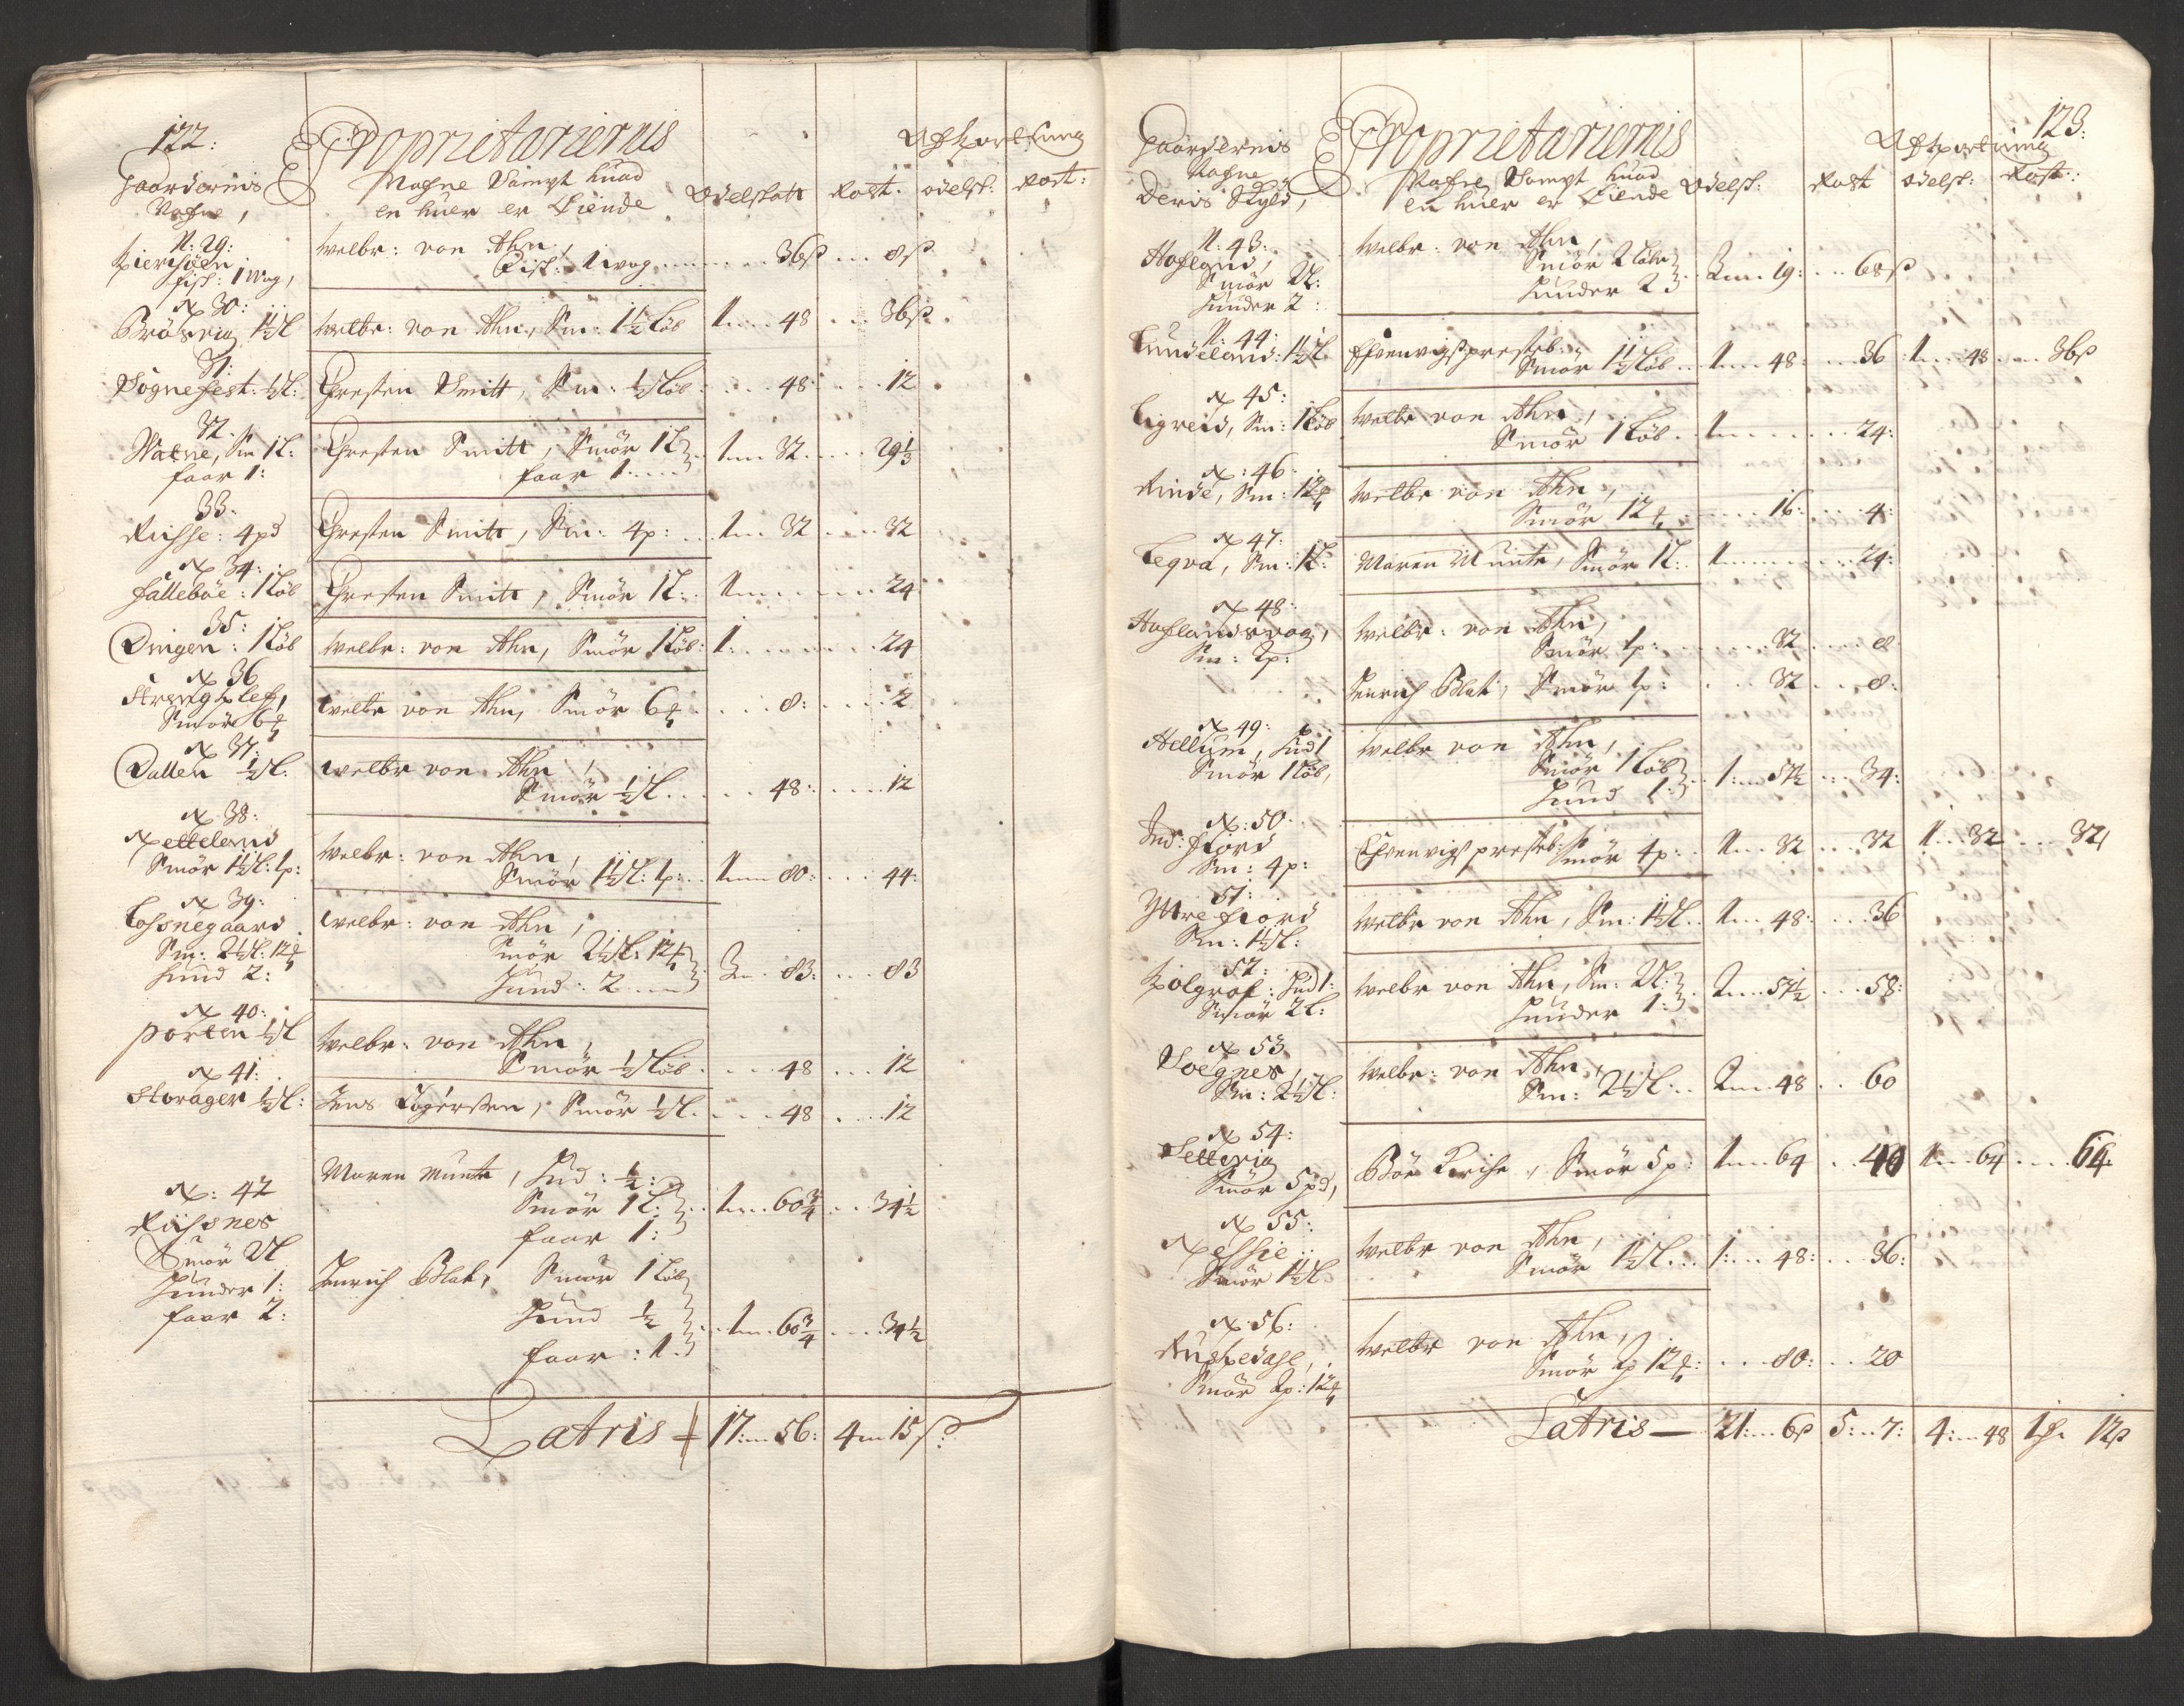 122:
Gaardernis
Nafne,
Proprietariernis
Nafne Sampt huad
en huer er Eiende
Odelskatt
Rost.
Afkortning
odelsk:
Rost:
N: 29:
fisk: 1 Wog,
welbr: von Ahn,
Fisk: 1 wog
36ß
8ß
N 30:
Brosvig 1½ L
welbr: von Ahn, Sm: 1½ Løb
1 48
36ß
31:
Sognefest: ½ L:
Chresten Smitt, Sm: ½ Løb
48
12
32.
Watne, Sm 1 L:
faar 1:
Chresten Smitt, Smör 1 L
faar 1
1 32
29⅓
33.
Riisse: 4pd
Chresten Smitt, Sm: 4p:
1 32
32
N 34:
Fallebøe: 1 Løb
Chresten Smitt, Smör 1 L:
1
24
35:
Dingen: 1 Løb
welbr: von Ahn, Smör 1 Løb:
1:
24
N 36
Smör 6
welbr von Ahn, Smör 6
8:
2
N 37:
Dallen ½ L:
welbr von Ahn,
Smör ½ L
48:
12
N 38:
Netteland
Smör 1½ L: 1p:
welbr: von Ahn,
Smör 1½ L: 1p:
1 80:
44:
N 39:
Losnegaard
Sm: 2½ L: 12
Hund 2:
welbr: von Ahn,
Smör 2½ L: 12
Hund: 2
3 83:
83
N 40:
Porten ½ L
welbr: von Ahn,
Smör ½ Løb
48
12
N 41:
Storager ½ L:
Jens Rogersen, Smör ½ L.
48
12
N: 42
Riisnes
Smör 2 L
Hunder 1:
faar 2:
Maren Munte, Hud: ½:
Smör 1 L:
faar 1:
1 60¾
34½
Henrich Blat, Smör 1 Løb
Hund ½
faar: 1
1 60¾
34½
Latris
17: 56:
4 15ß:
123:
Gaardernis
Nafne
Deris Skyld,
Proprietariernis
Nafne Sampt huad
en huer er Eiende
Odelsk:
Rost
Afkortning
odelsk:
Rost:
N: 43:
Hofland,
Smör 2 L:
Hunder 2:
welbr: von Ahn,
Smör 2 Løb
Hunder 2
3 19:
68ß
N: 44:
Lundeland: 1½ L
Efvenvigs præsteb:
Smör 1½ Løb
1 48:
36
1 48
36ß
N 45:
Ligreid, Sm: 1 Løb
welbr von Ahn,
Smör 1 Løb
1
24:
N: 46
Rinde, Sm: 12
welbr von Ahn,
Smör 12
16:
4:
N 47:
Leqva, Sm: 1 L:
Maren Munte, Smör 1 L:
1
24:
N 48:
Hoflandsvog,
Sm: 2p:
welbr: von Ahn,
Smör 1p:
32
8
Henrich Blat, Smör 1p:
32
8:
N 49:
Hellum, Hud 1
Smör 1 Løb,
welbr von Ahn,
Smör 1 Løb
Hund 1:
1: 57½
34:
N: 50
Ind: fiord
Sm: 4p:
Efvenvigs præsteb: Smör 4p:
1 32
32
1 32
32
51:
Yttre fiord
Sm: 1½ L:
welbr von Ahn, Sm: 1½ L
1 48:
36
52:
Kolgrof: Hud 1:
Smör 2 L:
welbr von Ahn, Sm: 2 L:
Hunder 1:
2 57½
58:
N 53
Sognes,
Sm: 2½ L:
welbr: von Ahn,
Sm: 2½ L:
2 48
60
N 54:
Settevig
Smör 5pd,
Böe Kirche, Smör 5p:
1 64
40
1 64
64
N 55:
Nessie
Smör 1½ L
welbr von Ahn,
Smör 1½ L
1: 48:
36:
N 56:
Smör 2p: 12
welbr von Ahn,
Smör 2p 12
80:
20
Latris
21: 6ß
5: 7:
4: 48
12ß